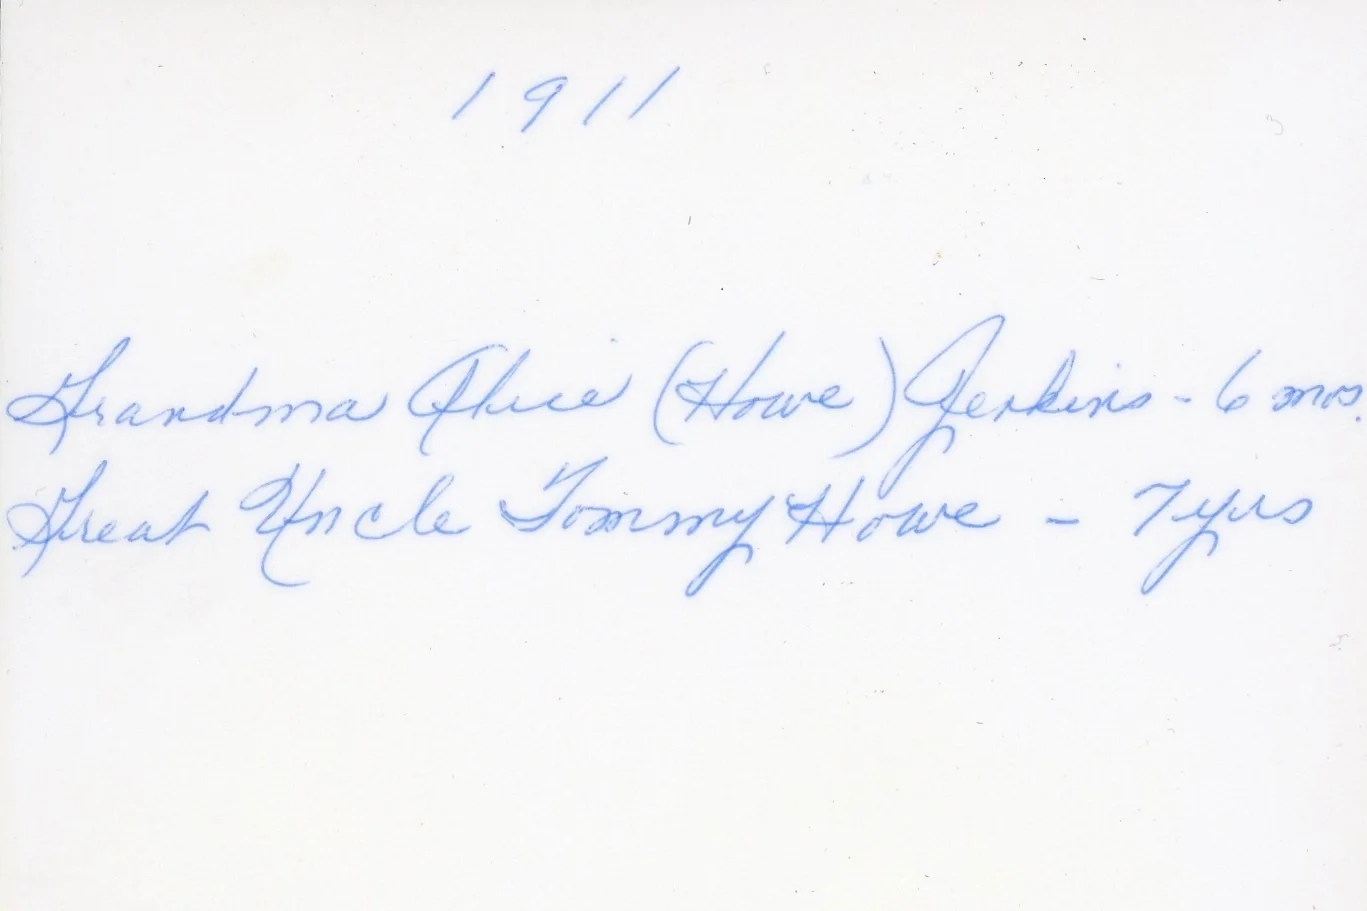 1911
Grandma Alice (Howe) Jenkins - 6 mos.
Great Uncle Tommy Howe - 7 yrs